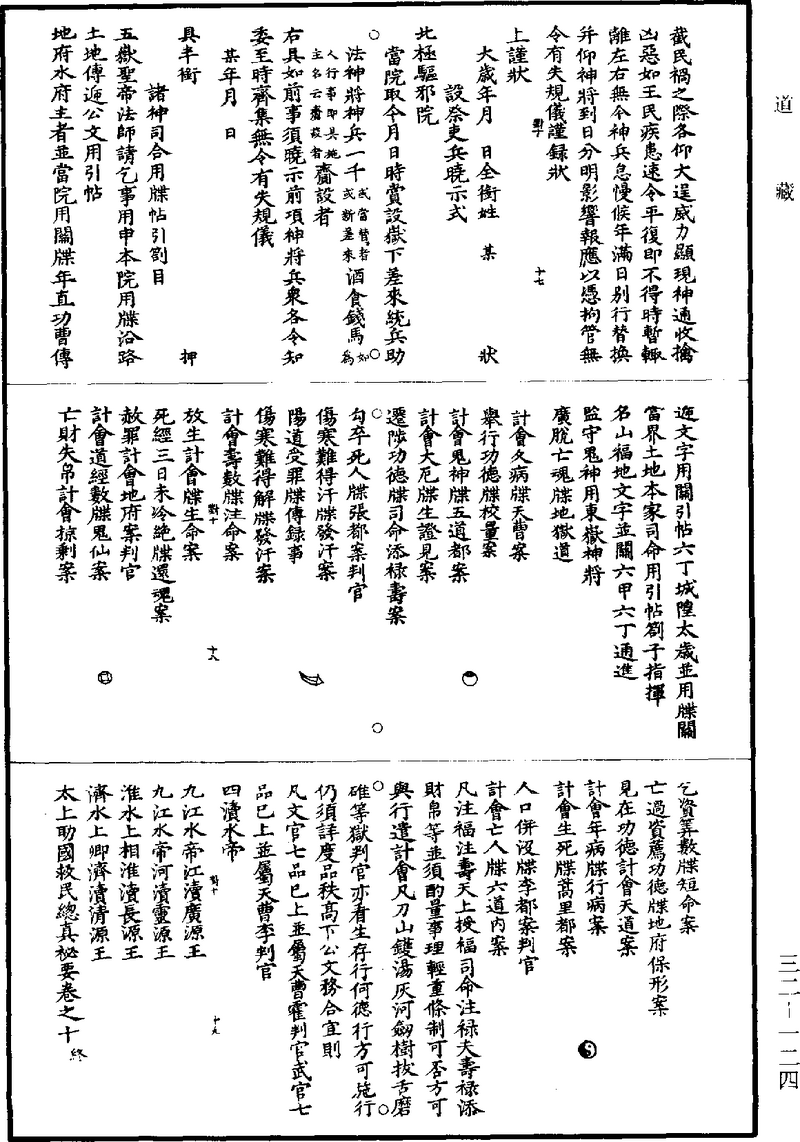 道藏
三二—一二四
截民禍之際各仰大逞威力顯現神通收擒
凶惡如王民疾患速令平復即不得時暫輙
離左右無令神兵怠慢候年滿日別行替換
并仰神將到日分明影響報應以憑拘管無
令有失規儀謹錄狀
上謹狀
大歲年月　日全銜姓　某　狀
設祭吏兵曉示式
北極驅邪院
當院取今月日時賞設嶽下差來統兵助
法神將神兵一千或當營者或新差來酒食錢馬如為人行事即具施主名云齋設者齋設者
右具如前事須曉示前項神將兵衆各令知
委至時齊集無令有失規儀
某年月　日
具半銜　押
諸神司合用牒帖引劄目
五嶽聖帝法師請乞事用申本院用牒沿路
土地傳遞公文用引帖
地府水府主者並當院用關牒年直功曹傳
遞文字用關引帖六丁城隍太歲並用牒關
當界土地本家司命用引帖劄子指揮
名山福地文字並關六甲六丁通進
監守鬼神用東嶽神將
廣脫亡魂牒地獄道
計會久病牒天曹案
舉行功德牒校量案
計會鬼神牒五道都案
計會大厄牒生證見案
遷陟功德牒司命添祿壽案
勾卒死人牒張都案判官
傷寒難得汗牒發汗案
陽道受罪牒傳錄事
傷寒難得解牒發汗案
計會壽數牒注命案
放生計會牒生命案
死經三日未冷絕牒還魂案
赦罪計會地府案判官
計會道經數牒鬼仙案
亡財失帛計會掠剩案
乞資筭數牒短命案
亡過資薦功德牒地府保形案
見在功德計會天道案
計會年病牒行病案
計會生死牒蒿里都案
人口併沒牒李都案判官
計會亡人牒六道內案
凡注福注壽天上授福司命注祿夫壽祿添
財帛等並須酌量事理輕重條制可否方可
與行遣計會凡刀山鑊湯灰河劒樹拔舌磨
碓等獄判官亦看生存行何德行方可施行
仍須詳度品秩高下公文務合宜則
凡文官七品已上並屬天曹霍判官武官七
品已上並屬天曹李判官
四瀆水帝
九江水帝江瀆廣源王
九江水帝河瀆靈源王
淮水上相淮瀆長源王
濟水上卿濟瀆清源王
太上助國救民總真祕要卷之十終